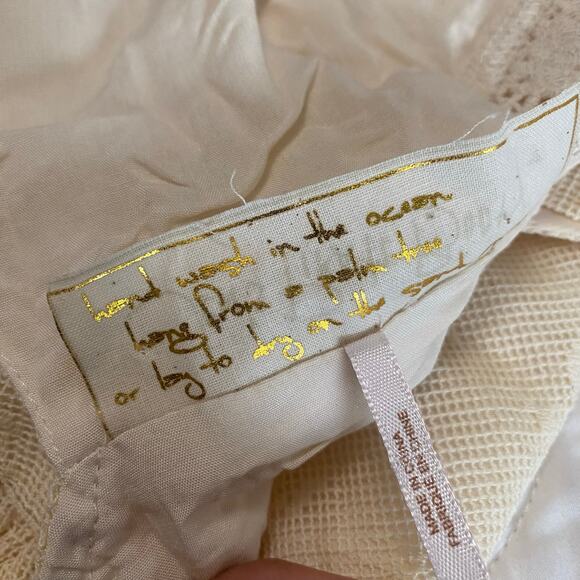 hand wash in the ocean
hang from a palm tree
or lay to dry on the
MADE IN CHINA
FABRIQUÉ EN CHINE